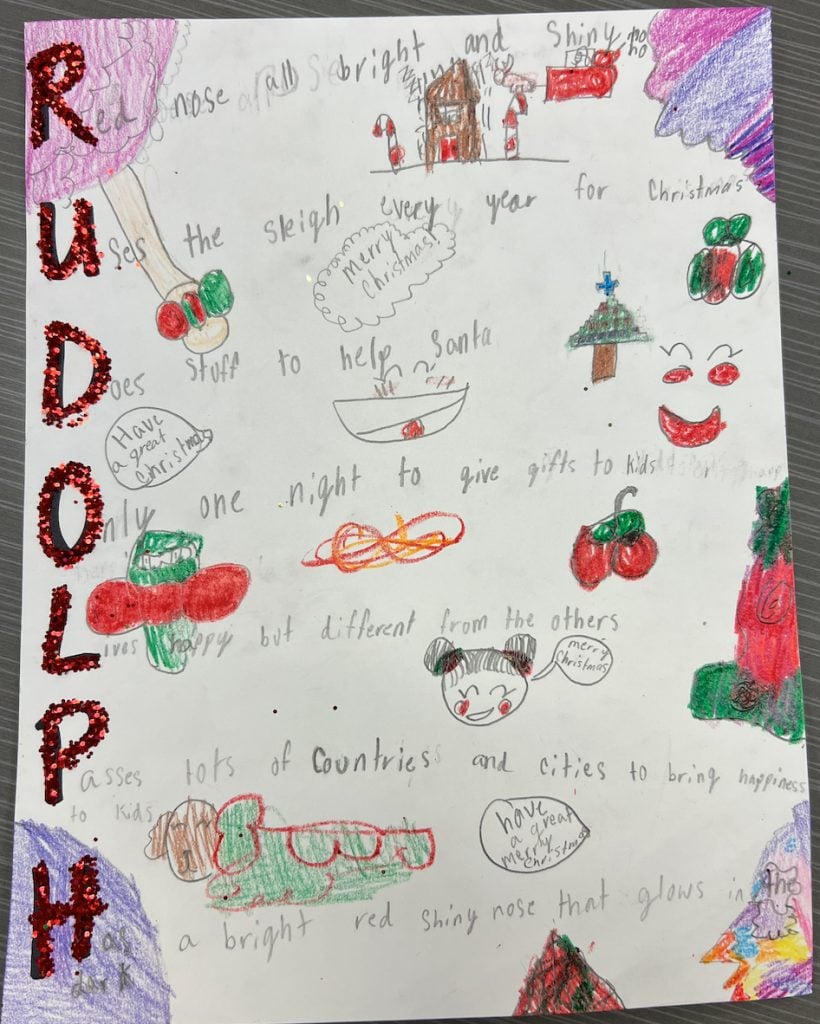 Red nose all bright and Shiny
ho ho
Uses the sleigh every year for Christmas
merry
Christmas!
Does stuff to help Santa
Have
a great
Christmas
Only one night to give gifts to kids
Lives happy but different from the others
merry
Christmas
Passes lots of Countries and cities to bring happiness
to kids
have
a great
merry
Christmas
Has a bright red shiny nose that glows in the
dark